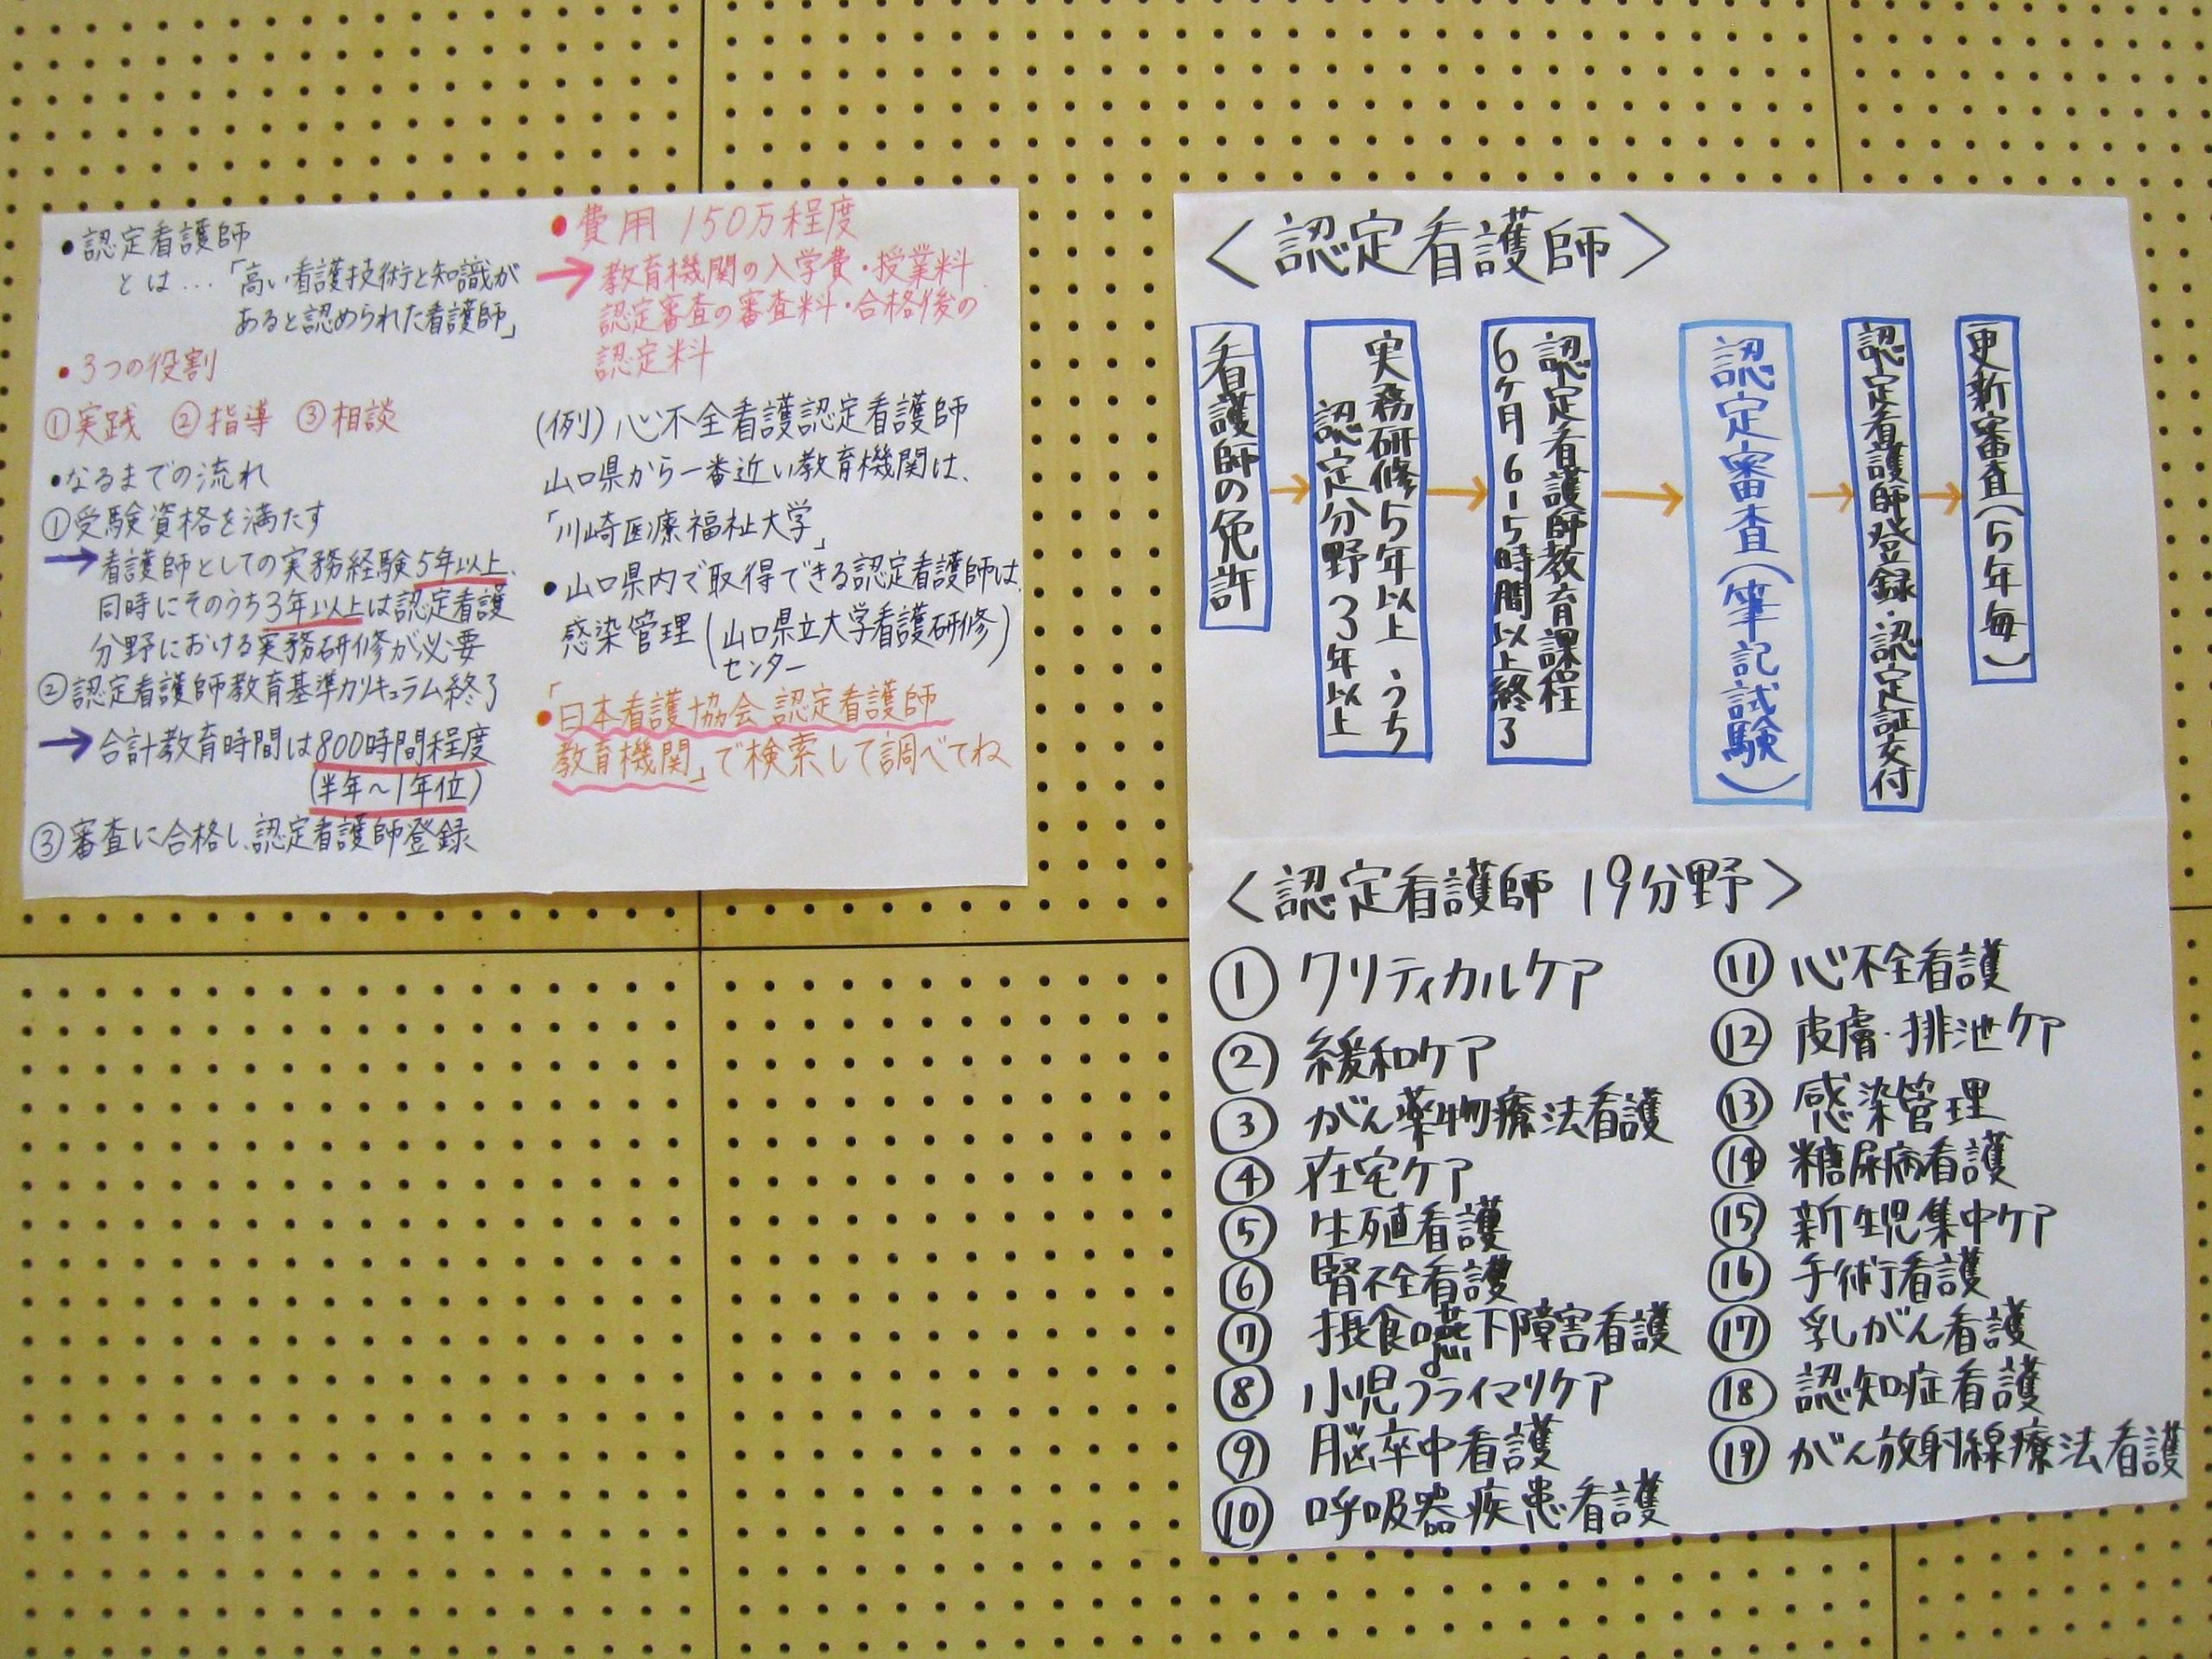 ・認定看護師
とは…「高い看護技術と知識が
あると認められた看護師」
・3つの役割
①実践 ②指導 ③相談
・なるまでの流れ
①受験資格を満たす
→看護師としての実務経験5年以上、
同時にそのうち3年以上は認定看護
分野における実務研修が必要
②認定看護師教育基準カリキュラム終了
→合計教育時間は800時間程度
(半年〜1年位)
③審査に合格し、認定看護師登録
・費用 150万程度
→教育機関の入学費・授業料、
認定審査の審査料・合格後の
認定料
(例)心不全看護認定看護師
山口県から一番近い教育機関は、
「川崎医療福祉大学」
・山口県内で取得できる認定看護師は、
感染管理(山口県立大学看護研修
センター)
・「日本看護協会 認定看護師
教育機関」で検索して調べてね
<認定看護師>
看護師の免許
→
実務研修5年以上 うち
認定分野3年以上
→
認定看護師教育課程
6ヶ月 615時間以上終了
→
認定審査(筆記試験)
→
認定看護師登録・認定証交付
→
更新審査(5年毎)
<認定看護師 19分野>
① クリティカルケア
② 緩和ケア
③ がん薬物療法看護
④ 在宅ケア
⑤ 生殖看護
⑥ 腎不全看護
⑦ 摂食嚥下障害看護
⑧ 小児プライマリケア
⑨ 脳卒中看護
⑩ 呼吸器疾患看護
⑪ 心不全看護
⑫ 皮膚・排泄ケア
⑬ 感染管理
⑭ 糖尿病看護
⑮ 新生児集中ケア
⑯ 手術看護
⑰ 乳がん看護
⑱ 認知症看護
⑲ がん放射線療法看護